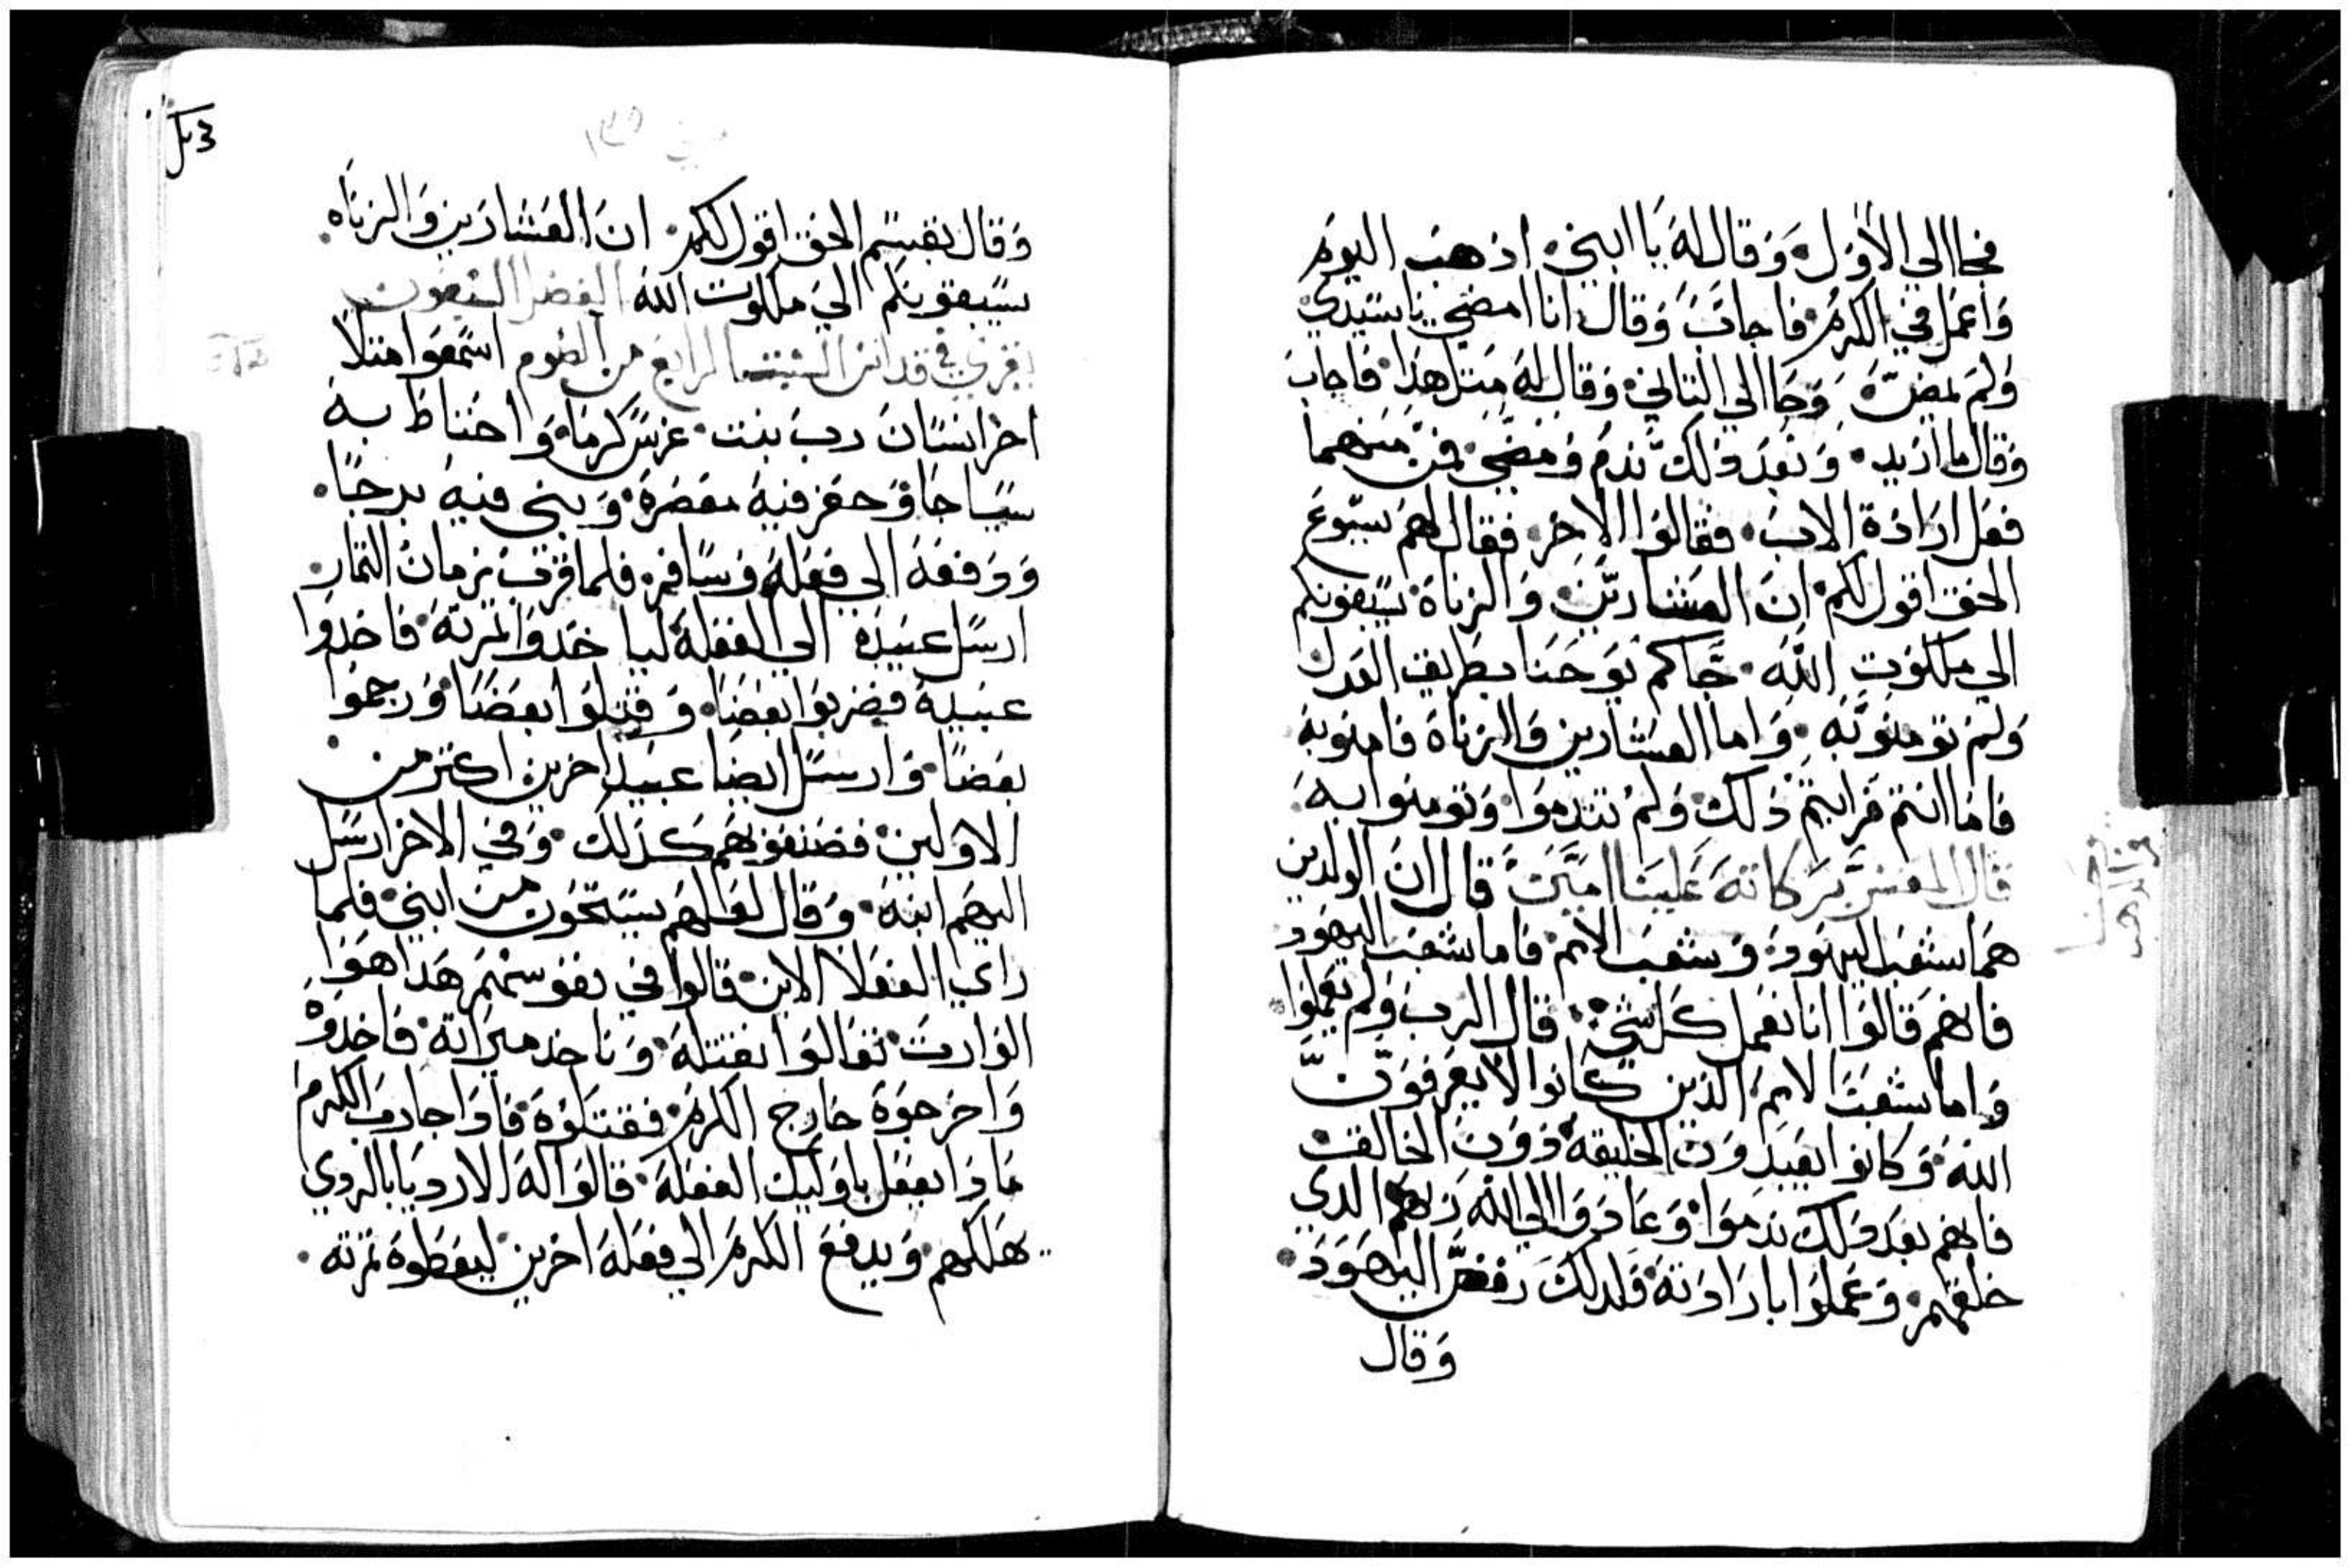 فجا الي الاول وقال له يا ابني اذهب اليوم
واعمل في الكرم فاجاب وقال انا امضي يا سيدي
ولم يمض وجا الي التاني وقال له متل هذا فاجاب
وقال ما اريد وبعد ذلك ندم ومضي فمن منهما
فعل ارادة الاب فقالوا الاخر فقال لهم يسوع
الحق اقول لكم ان العشارين والزناة يسبقونكم
الي ملكوت الله جاكم يوحنا بطريق العدل
ولم تومنوا به واما العشارين والزناة فامنو به
فاما انتم فرايتم ذلك ولم تتندموا وتومنوا به
قال المفسر بركاته علينا امين قال ان الولدين
هما شعب اليهود وشعب الامم فاما شعب اليهود
فانهم قالوا انا نعمل كل شي قال الرب ولم يعملوا
واما شعب الامم الذين كانوا لا يعرفون
الله وكانوا يعبدون الخليقه دون الخالق
فانهم بعد ذلك ندموا وعادوا الي الله ربهم الدي
خلقهم وعملوا بارادته فلدلك رفض اليهود
وقال
وقال بقسم الحق اقول لكم ان العشارين والزناه
يسبقونكم الي ملكوت الله الفصل
يقري في قداس السبت الرابع من الصوم اسمعوا متلا
اخر انسان رب بيت غرس كرما واحتاط به
سياجا وحفر فيه معصرة وبني فيه برجا
ودفعه الي فعلة وسافر فلما قرب زمان التمار
ارسل عبيده الي الفعلة لياخدوا تمرته فاخدوا
عبيده فضربوا بعضا وقتلوا بعضا ورجموا
بعضا وارسل ايضا عبيد اخرين اكتر من
الاولين فصنعو بهم كذلك وفي الاخر ارسل
اليهم ابنه وقال لعلهم يستحون من ابني فلما
راي الفعلا الابن قالوا في نفوسهم هدا هوا
الوارت تعالوا نقتله وناخد ميراته فاخدوه
واخرجوه خارج الكرم فقتلوه فادا جا رب الكرم
مادا يفعل باوليك الفعلة قالوا له الارديا بالردي
يهلكهم ويدفع الكرم الي فعلة اخرين ليعطوه تمرته